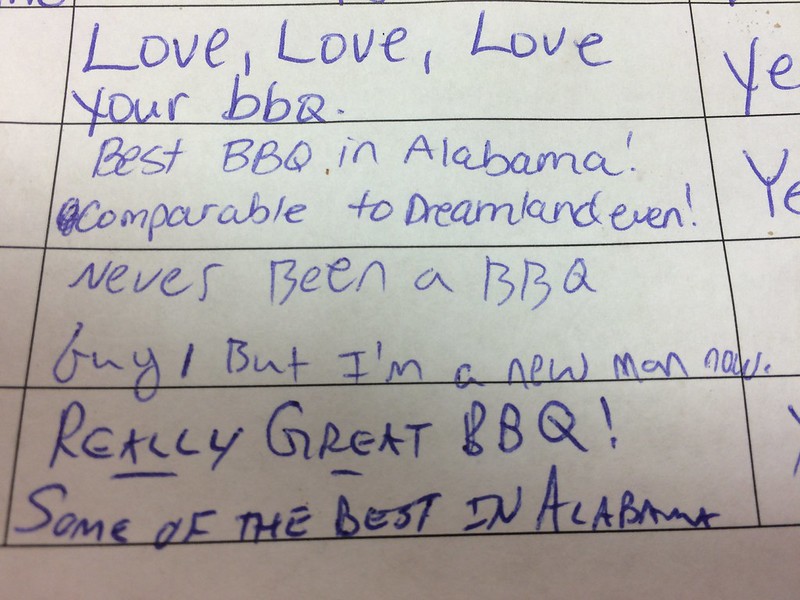 Love, Love, Love
your bbQ.
Ye
Best BBQ in Alabama!
comparable to Dreamland even!
Ye
Never Been a BBQ
Guy, But I'm a new man now.
REALLY GREAT BBQ!
SOME OF THE BEST IN ALABAMA